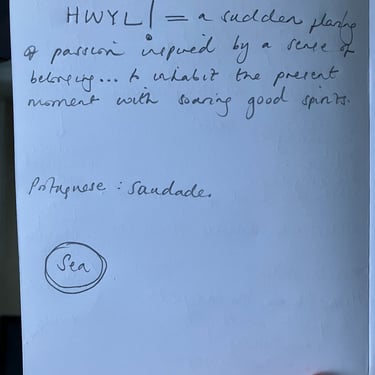 HWYL! = a sudden flaring
of passion inspired by a sense of
belonging... to inhabit the present
moment with soaring good spirits.
Portuguese : Saudade.
Sea